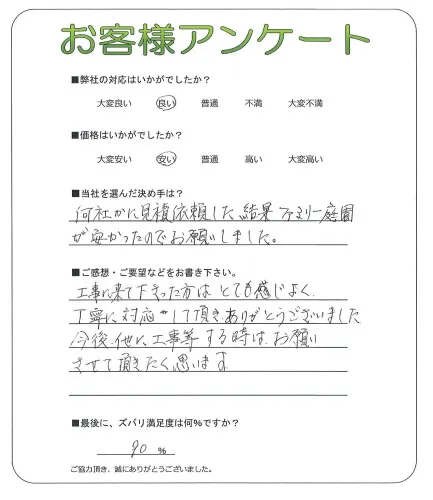 お客様アンケート
■弊社の対応はいかがでしたか?
大変良い 良い 普通 不満 大変不満
■価格はいかがでしたか?
大変安い 安い 普通 高い 大変高い
■当社を選んだ決め手は?
何社かに見積依頼した結果 ファミリー庭園
が安かったのでお願いしました。
■ご感想・ご要望などをお書き下さい。
工事に来て下さった方は とても感じよく
丁寧に対応して頂き、ありがとうございました
今後、他に工事等する時は、お願い
させて頂きたく思います
■最後に、ズバリ満足度は何%ですか?
90 %
ご協力頂き、誠にありがとうございました。